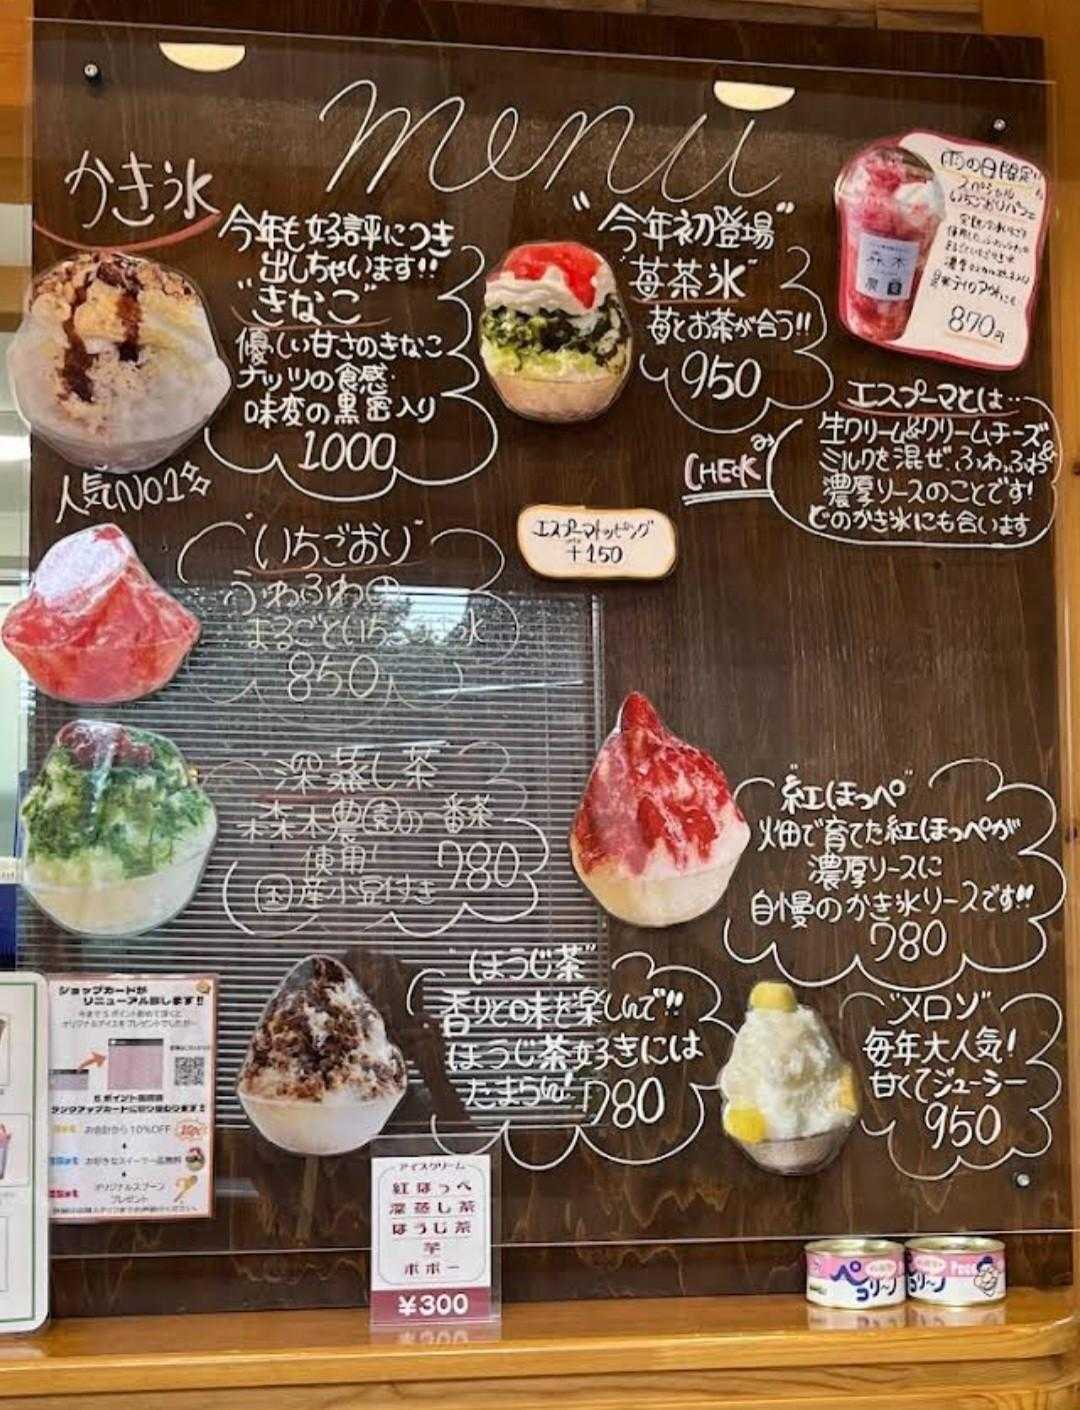 menu
かき氷
今年も好評につき
出しちゃいます!!
"きなこ"
優しい甘さのきなこ
ナッツの食感・
味変の黒蜜入り
1000
"今年初登場"
苺茶氷
苺とお茶が合う!!
950
雨の日限定
スペシャル
いちごおりパフェ
870円
エスプーマとは…
生クリーム&クリームチーズ&
ミルクを混ぜ、ふわふわ
濃厚ソースのことです!
どのかき氷にも合います
CHECK
エスプーマトッピング
+150
人気NO1
"いちごおり"
ふわふわの
まるごといち
氷
850
深蒸し茶
森木農園の一番茶
使用!
国産小豆付き
780
"紅ほっぺ"
畑で育てた紅ほっぺが
濃厚ソースに
自慢のかき氷ソースです!!
780
"ほうじ茶"
香りと味を楽しんで!!
ほうじ茶好きには
たまらん!
780
"メロン"
毎年大人気!
甘くてジューシー
950
ショップカードが
リニューアル致します!!
お会計から10%OFF
お好きなスイーツ一品無料
オリジナルスプーン
プレゼント
アイスクリーム
紅ほっぺ
深蒸し茶
ほうじ茶
芋
ポポー
¥300
ペコリ〜ノ